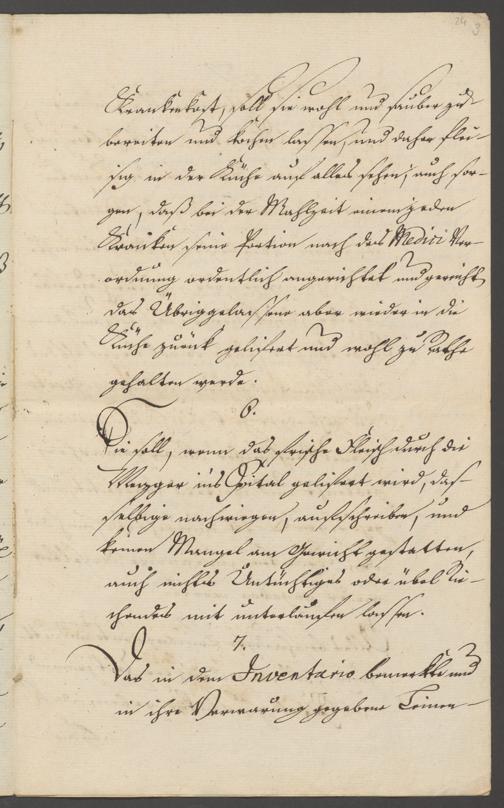 24 3
Krankenkost, soll sie wohl und sauber zu-
bereiten und kochen lassen, und daher flei-
sig in der Küche auf alles sehen, auch sor-
gen, daß bei der Mahlzeit einem jeden
Kranken seine Portion nach des Medici Ver-
ordnung ordentlich angerichtet und gereicht,
das Übriggelassene aber wieder in die
Küche zurück gelifert und wohl zu Rathe
gehalten werde.
6.
Sie soll, wenn das frische Fleisch durch die
Mezger ins Spital gelifert wird, das-
selbige nachwiegen, aufschreiben, und
keinen Mangel am Gewicht gestatten,
auch nichts Untüchtiges oder übel Rie-
chendes mit unterlaufen lassen.
7.
Das in dem Inventario bemerkte und
in ihre Verwarung gegebene Leinen-